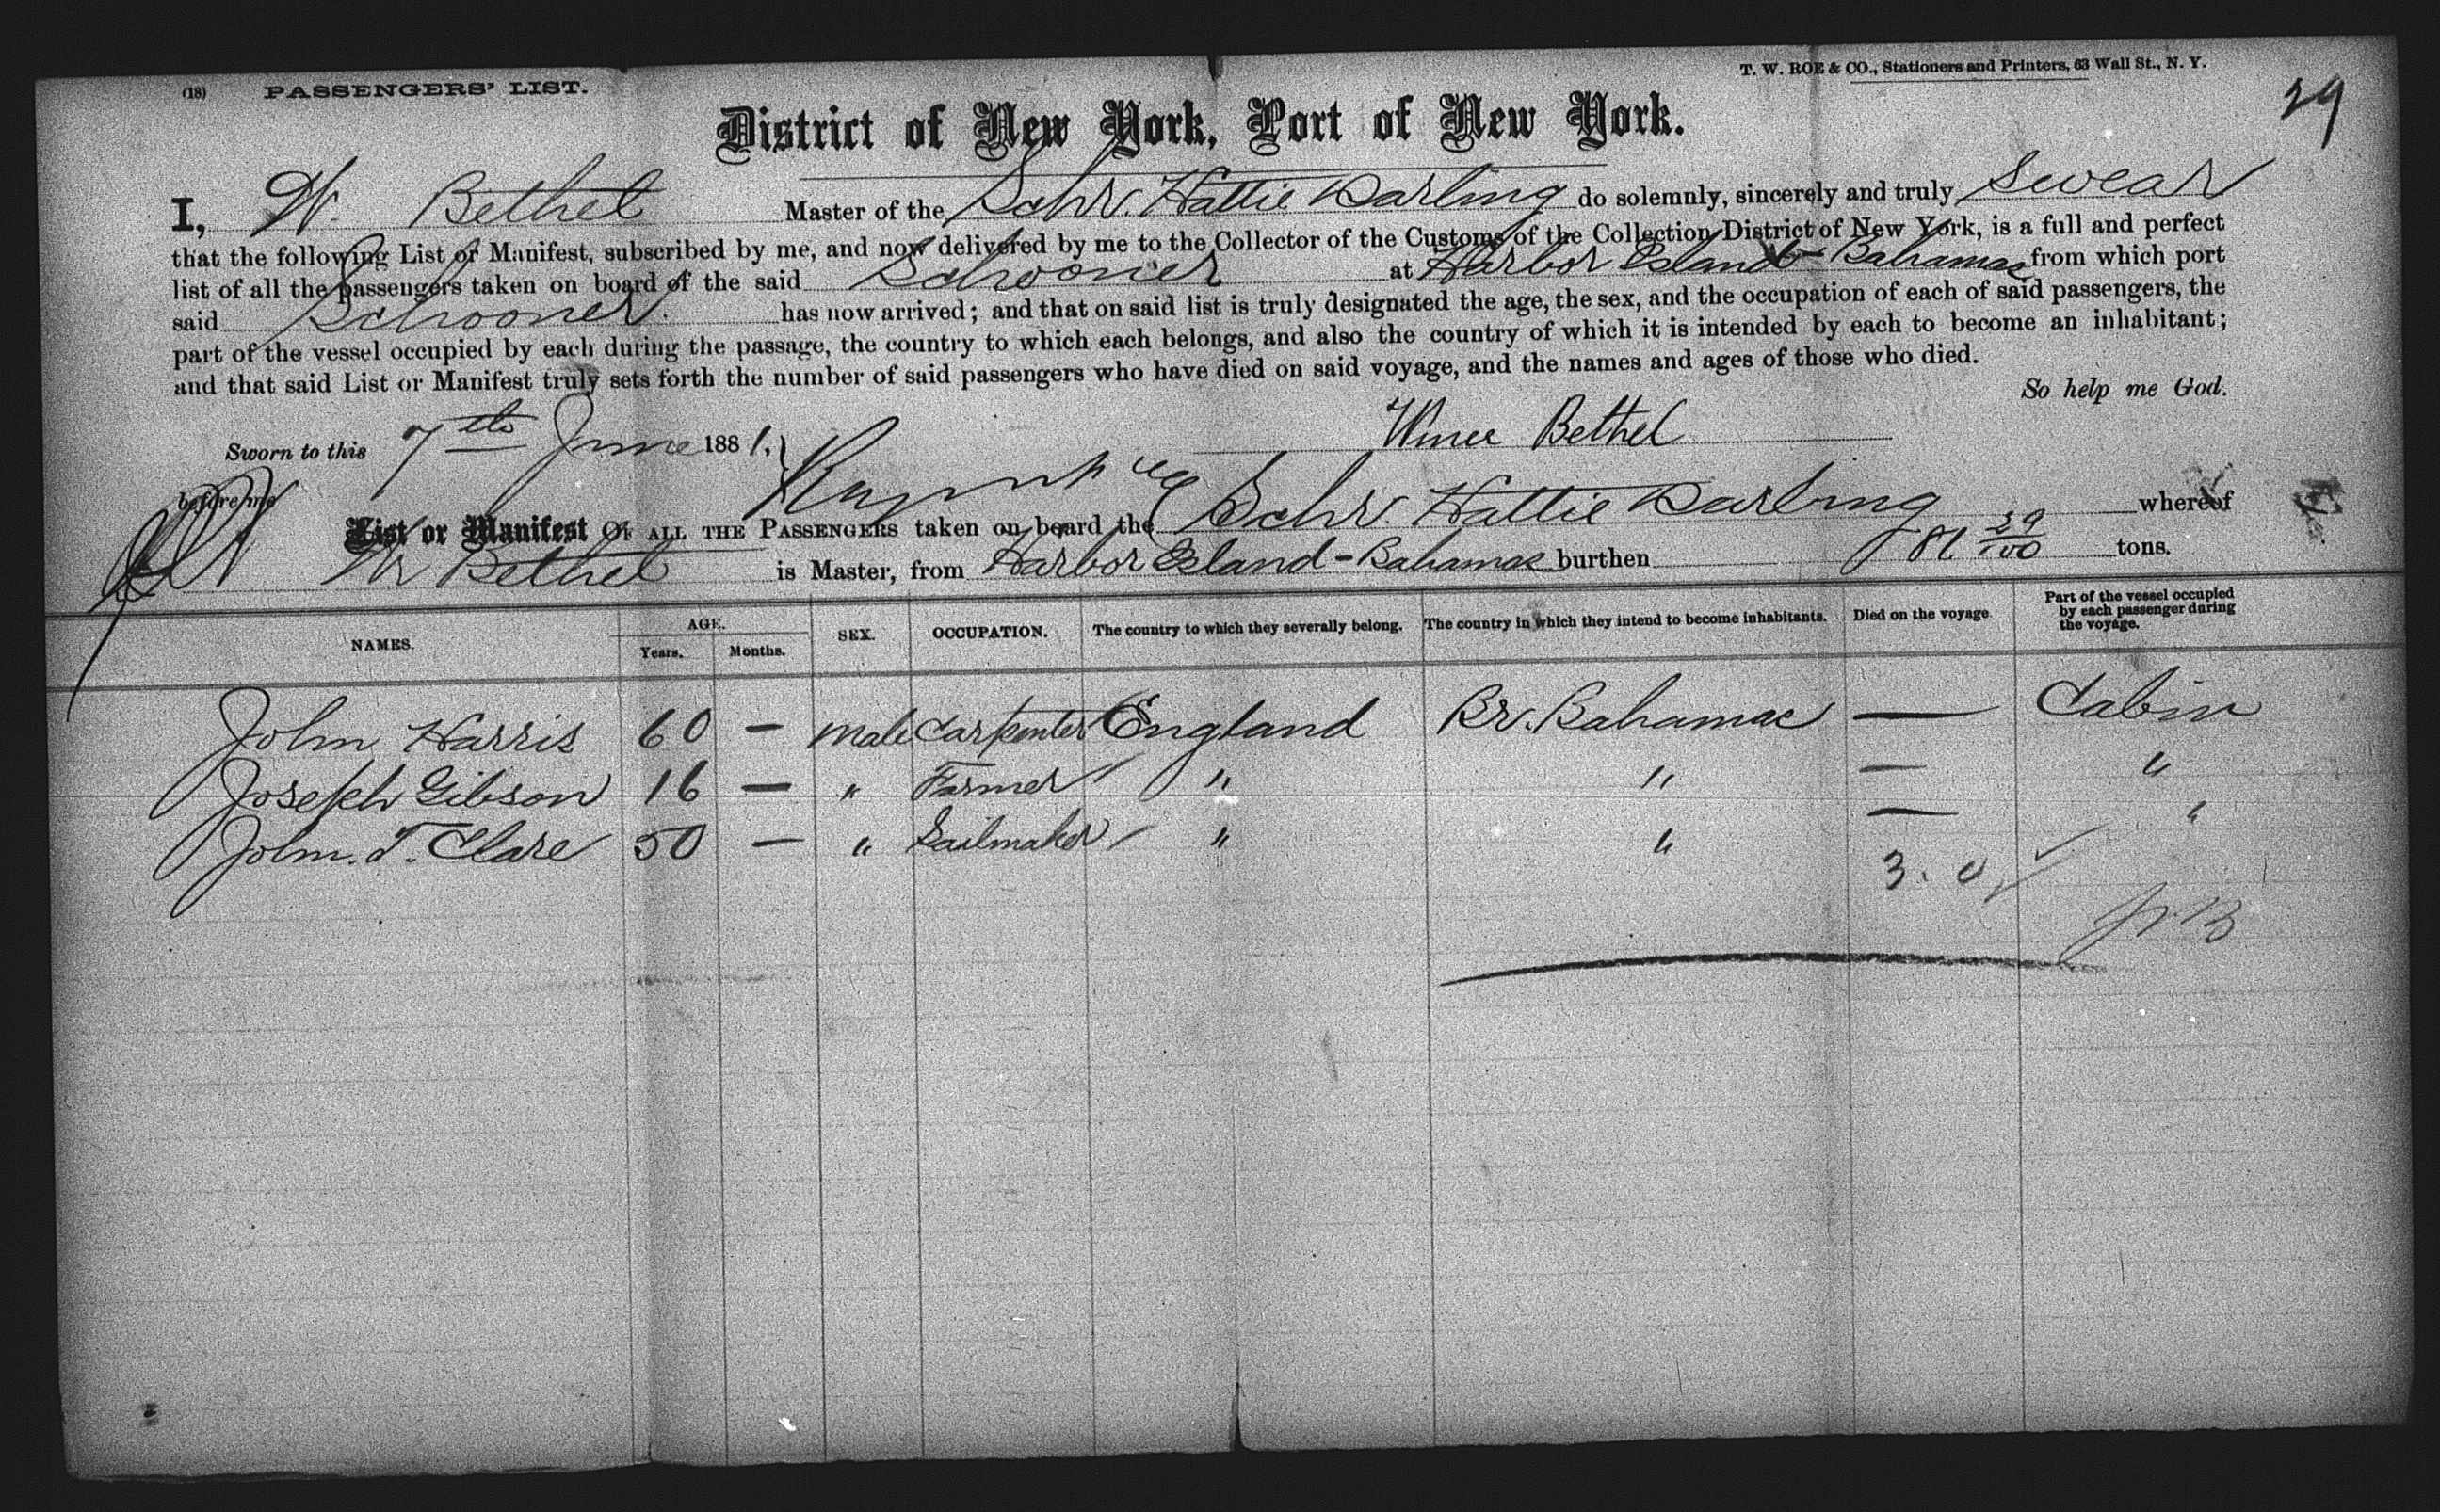 (18) PASSENGERS' LIST.
T. W. ROE & CO., Stationers and Printers, 63 Wall St., N. Y.
29
District of New York, Port of New York.
I, W. Bethel Master of the Schr. Hattie Darling do solemnly, sincerely and truly Swear
that the following List or Manifest, subscribed by me, and now delivered by me to the Collector of the Customs of the Collection District of New York, is a full and perfect
list of all the passengers taken on board of the said Schooner at Harbor Island - Bahamas from which port
said Schooner has now arrived; and that on said list is truly designated the age, the sex, and the occupation of each of said passengers, the
part of the vessel occupied by each during the passage, the country to which each belongs, and also the country of which it is intended by each to become an inhabitant;
and that said List or Manifest truly sets forth the number of said passengers who have died on said voyage, and the names and ages of those who died.
So help me God.
Sworn to this 7th June 1881. Bethel
before me
List or Manifest OF ALL THE PASSENGERS taken on board the Schr. Hattie Darling whereof
W Bethel is Master, from Harbor Island - Bahamas burthen 81 39/100 tons.
NAMES. AGE. Years. Months. SEX. OCCUPATION. The country to which they severally belong. The country in which they intend to become inhabitants. Died on the voyage Part of the vessel occupied by each passenger during the voyage.
John Harris 60 — male Carpenter England Br. Bahamas — Cabin
Joseph Gibson 16 — " Farmer " " — "
John. T. Clare 50 — " Sailmaker " " — "
3. 0